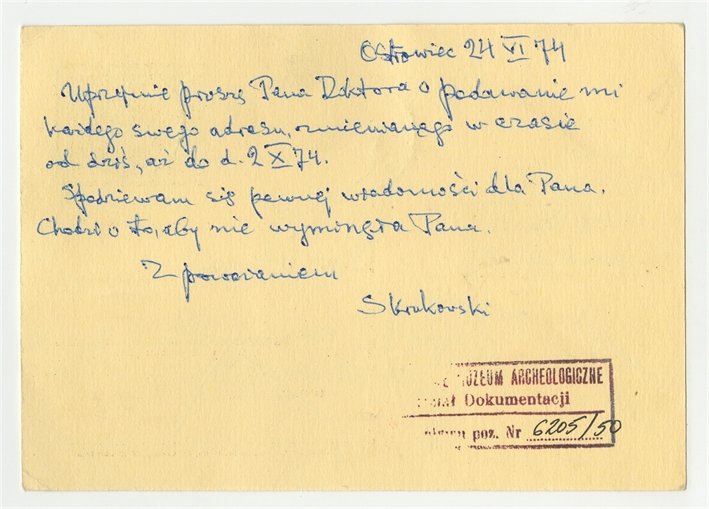 Ostrowiec 24 VI 74
Uprzejmie proszę Pana Doktora o podawanie mi
każdego swego adresu, zmieniającego w czasie
od dziś, aż do d. 2 X 74.
Spodziewam się pewnej wiadomości dla Pana.
Chodzi o to, aby nie wyminęła Pana.
Z poważaniem
S Krukowski
MUZEUM ARCHEOLOGICZNE
Dokumentacji
poz. Nr 6205/50